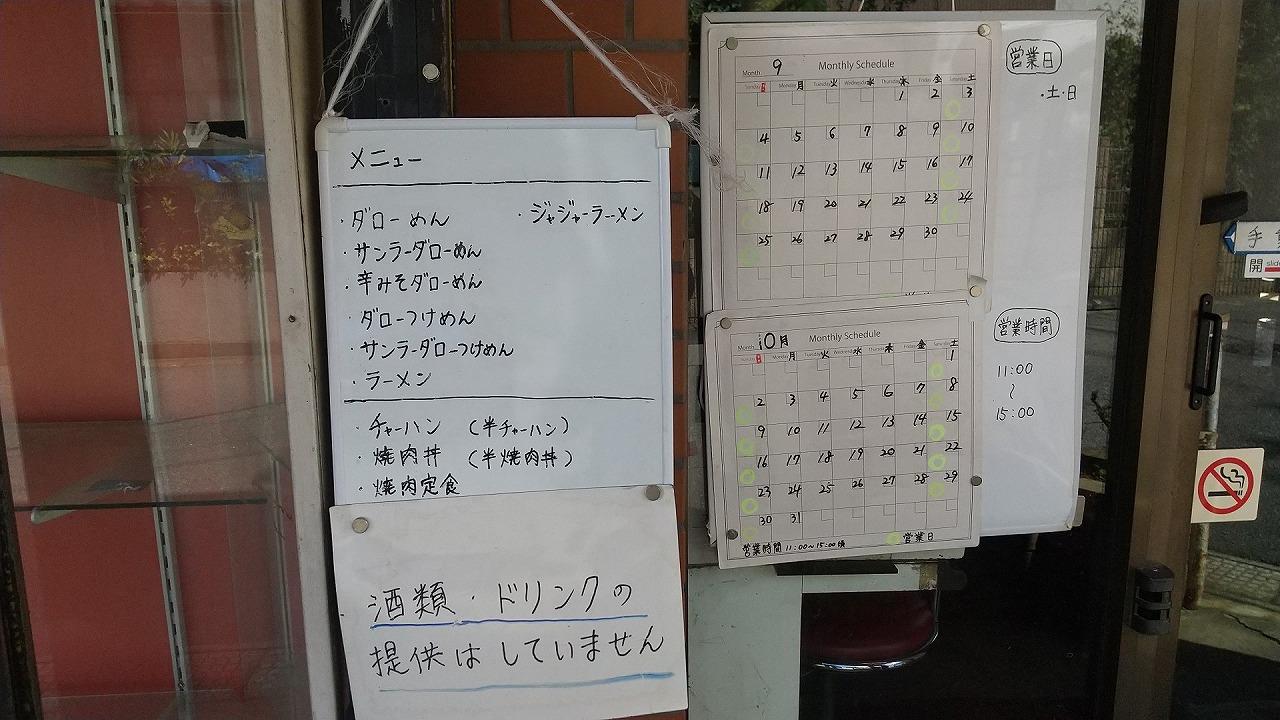 メニュー
・ダローめん ・ジャジャーラーメン
・サンラーダローめん
・辛みそダローめん
・ダローつけめん
・サンラーダローつけめん
・ラーメン
・チャーハン (半チャーハン)
・焼肉丼 (半焼肉丼)
・焼肉定食
酒類・ドリンクの
提供はしていません
Month 9 Monthly Schedule
Sunday 日 Monday 月 Tuesday 火 Wednesday 水 Thursday 木 Friday 金 Saturday 土
1 2 3
4 5 6 7 8 9 10
11 12 13 14 15 16 17
18 19 20 21 22 23 24
25 26 27 28 29 30
Month 10月 Monthly Schedule
Sunday 日 Monday 月 Tuesday 火 Wednesday 水 Thursday 木 Friday 金 Saturday 土
1
2 3 4 5 6 7 8
9 10 11 12 13 14 15
16 17 18 19 20 21 22
23 24 25 26 27 28 29
30 31
営業時間 11:00~15:00頃 営業日
営業日
・土・日
営業時間
11:00
~
15:00
手
開 slide